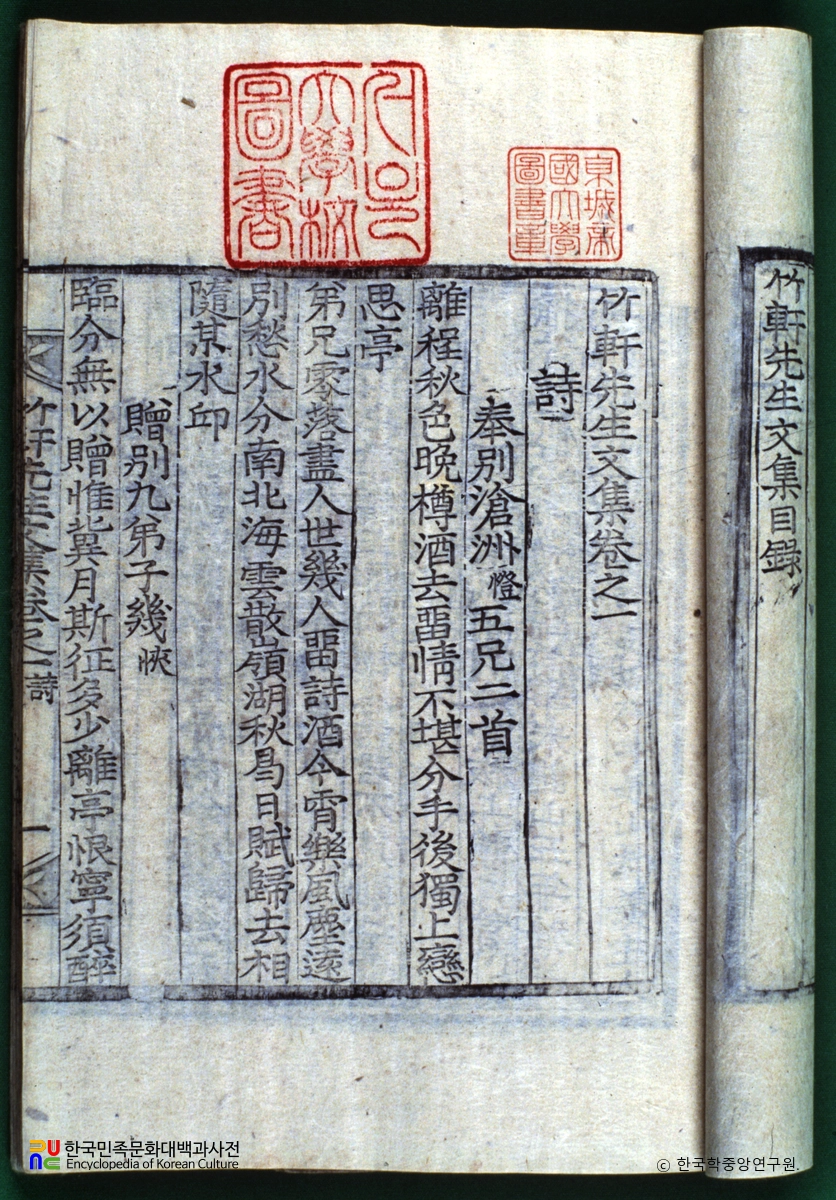 竹軒先生文集目錄
서울
大學校
圖書
京城帝
國大學
圖書章
竹軒先生文集卷之一
詩
奉別滄洲燈五兄二首
離程秋色晚樽酒去畱情不堪分手後獨上戀
思亭
弟兄零落盡人世幾人畱詩酒今宵樂風塵遠
別愁水分南北海雲散嶺湖秋曷日賦歸去相
隨某水邱
贈別九弟子幾
臨分無以贈惟冀月斯征多少離亭恨寧須醉
竹軒先生文集卷之一 詩 一
한국민족문화대백과사전
Encyclopedia of Korean Culture
© 한국학중앙연구원.